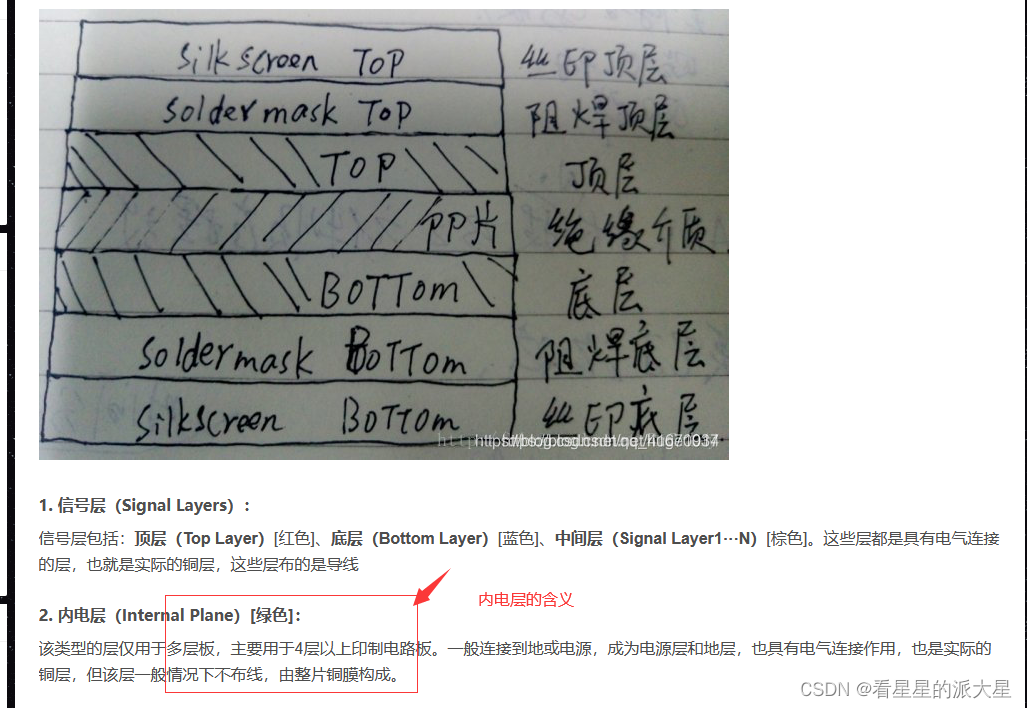 Silkscreen TOP 丝印顶层
Soldermask TOP 阻焊顶层
TOP 顶层
PP片 绝缘介质
BOTTom 底层
Soldermask BOTTom 阻焊底层
Silkscreen BOTTom 丝印底层
1. 信号层（Signal Layers）：
信号层包括：顶层（Top Layer）[红色]、底层（Bottom Layer）[蓝色]、中间层（Signal Layer1···N）[棕色]。这些层都是具有电气连接
的层，也就是实际的铜层，这些层布的是导线
内电层的含义
2. 内电层（Internal Plane）[绿色]：
该类型的层仅用于多层板，主要用于4层以上印制电路板。一般连接到地或电源，成为电源层和地层，也具有电气连接作用，也是实际的
铜层，但该层一般情况下不布线，由整片铜膜构成。
CSDN @看星星的派大星